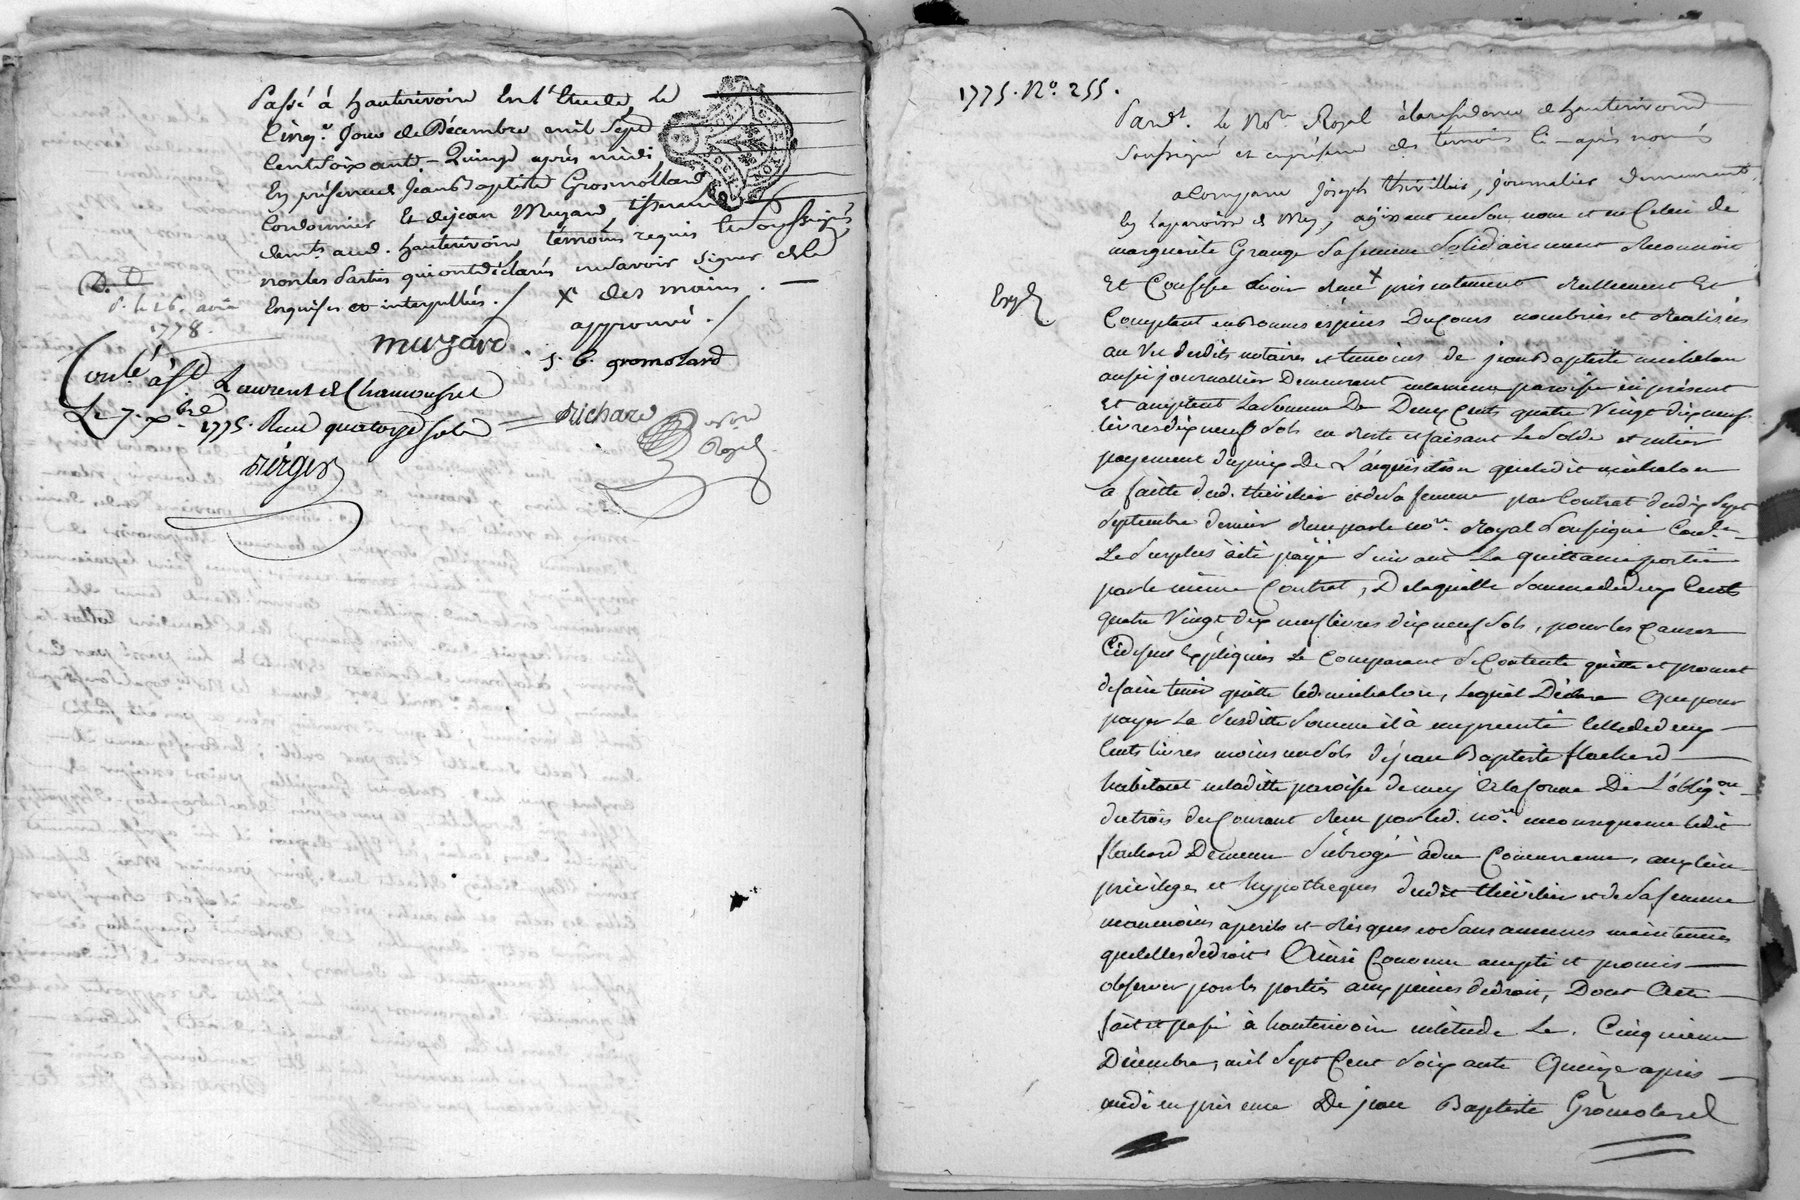 Passé à hauterivoire En l'Etude, Le
Cinq.e Jour de Décembre mil Sept
Cent Soixante-Quinze après midi
En présence de Jean Baptiste Gromollard
Cordonnier Et de jean Muzard, tisserand
dem.ts aud. hauterivoire témoins requis
non les parties qui ont déclarés ne savoir signer de ce
Enquises et interpellées. /
X des mains. —
approuvé. /
D. D
P. le 26. août
1778.
muzard.
J. B. gromolard
Conlé à St Laurent de Chamousset
Le 7. Xbre 1775. Reçu quatorze sols
richard
nore
Royal
1775. No. 255.
Pard.t Le No.re Royal à la résidence de hauterivoire
Soussigné et en présence des temoins ci-après només
a Comparu Joseph thivillier, journalier demeurant
En la paroisse de Mey, agissant en son nom et en Celui de
marguerite Grange Sa femme Solidairement Reconnoit
Et Confesse avoir Reçu X présentement réellement Et
Exp.d
Comptant en bonnes éspéces Du Cours nombrées et Réalisées
au Vu desdits notaires et temoins de jean Baptiste michalon
aussi journallier Demeurant même paroisse ici présent
Et acceptant La Somme De Deux Cents quatre Vingt dix neuf
livres dix neuf Sols en reste et faisant Le Solde et entier
payement du prix De L'acquisition que ledit michalon
a faitte dud. thivilier et de Sa femme par Contrat du dix Sept
Septembre dernier Reçu par le no.re Royal Soussigné
Le Surplus à été payé Suivant La quittance portée
par le même Contrat, De laquelle Somme de deux Cents
quatre Vingt dix neuf livres dix neuf Sols, pour les Causes
Cidessus Expliquées Le Comparant Se Contente quitte et promet
de faire tenir quitte led. michalon, Lequel Déclare Que pour
payer La Susditte Somme il à emprunté Celle de deux
Cents livres moins un Sols de jean Baptiste flachard
habitant en laditte paroisse de mey à la forme De L'oblig.on
du trois du Courant Reçu par led. no.re en consequence ledit
flachard Demeure Subrogé à due Concurrence, aux
privilèges et hypotheques dudit thivilier et de Sa femme
neanmoins à perils et Risques et Sans aucunes maintenues
que celles de droit. Ainsi Convenu accepté et promis
observer par les parties aux peines de droit, Dont Acte
fait et passé à hauterivoire en l'étude Le. Cinquieme
Décembre, mil Sept Cent Soixante Quinze après
midi en présence De jean Baptiste Gromolard